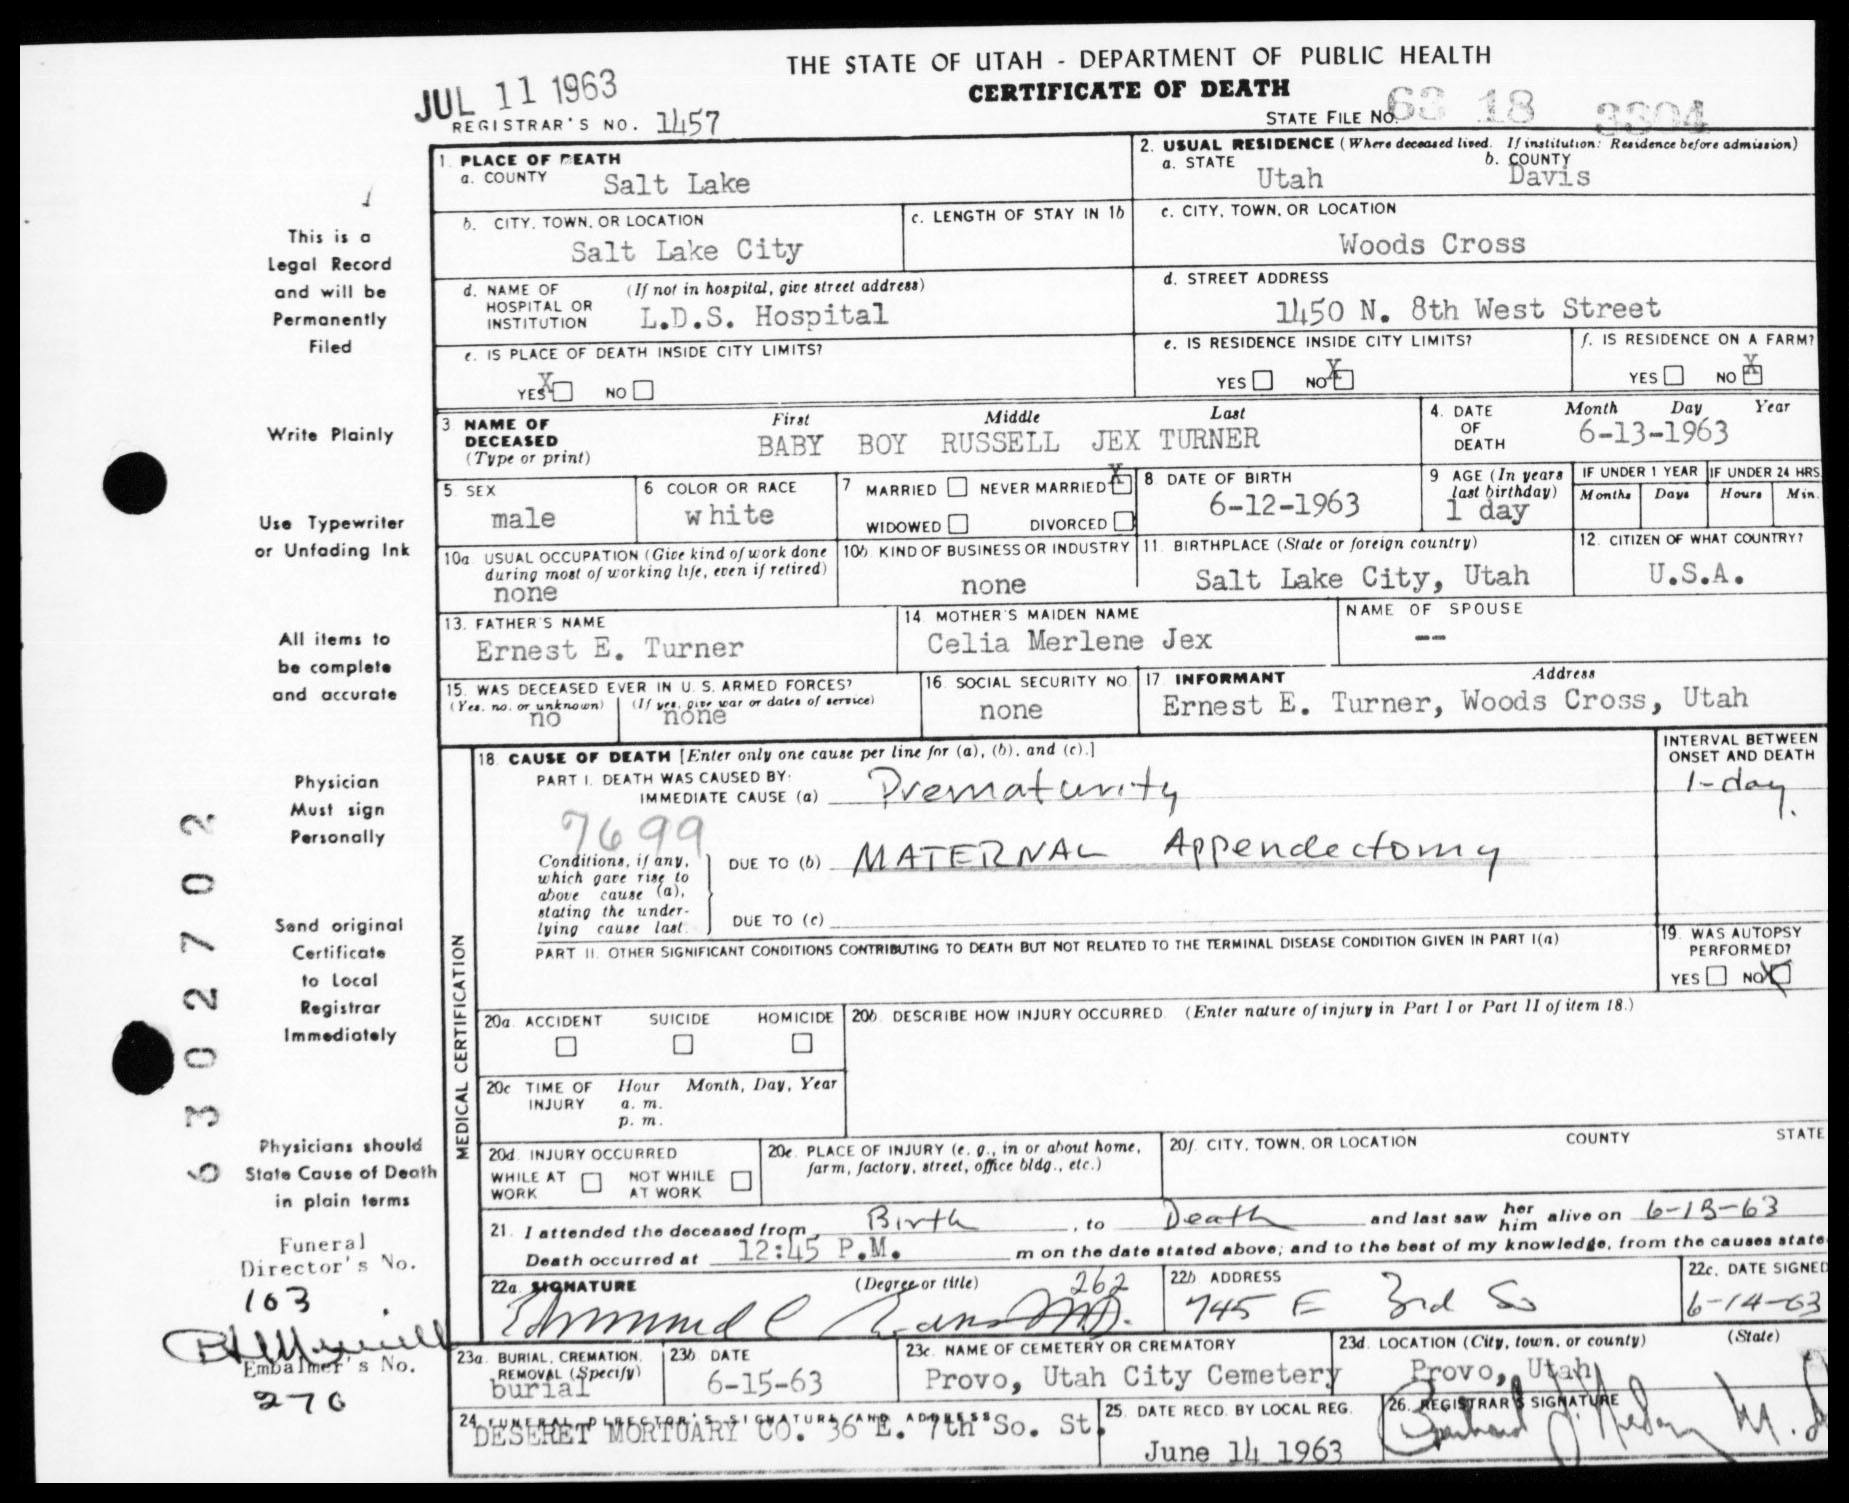 THE STATE OF UTAH - DEPARTMENT OF PUBLIC HEALTH
CERTIFICATE OF DEATH
JUL 11 1963
REGISTRAR'S NO. 1457
STATE FILE NO. 63 18 3304
This is a
Legal Record
and will be
Permanently
Filed
Write Plainly
Use Typewriter
or Unfading Ink
All items to
be complete
and accurate
Physician
Must sign
Personally
Send original
Certificate
to Local
Registrar
Immediately
Physicians should
State Cause of Death
in plain terms
Funeral
Director's No.
103
Embalmer's No.
276
6302702
1. PLACE OF DEATH
a. COUNTY Salt Lake
2. USUAL RESIDENCE (Where deceased lived. If institution: Residence before admission)
a. STATE Utah b. COUNTY Davis
b. CITY, TOWN, OR LOCATION Salt Lake City
c. LENGTH OF STAY IN 1b
c. CITY, TOWN, OR LOCATION Woods Cross
d. NAME OF HOSPITAL OR INSTITUTION (If not in hospital, give street address) L.D.S. Hospital
d. STREET ADDRESS 1450 N. 8th West Street
e. IS PLACE OF DEATH INSIDE CITY LIMITS?
YES X NO
e. IS RESIDENCE INSIDE CITY LIMITS?
YES NO X
f. IS RESIDENCE ON A FARM?
YES NO X
3 NAME OF DECEASED (Type or print) First Middle Last
BABY BOY RUSSELL JEX TURNER
4. DATE OF DEATH Month Day Year
6-13-1963
5. SEX male
6 COLOR OR RACE white
7 MARRIED NEVER MARRIED X
WIDOWED DIVORCED
8 DATE OF BIRTH 6-12-1963
9 AGE (In years last birthday) 1 day
IF UNDER 1 YEAR Months Days
IF UNDER 24 HRS Hours Min.
10a USUAL OCCUPATION (Give kind of work done during most of working life, even if retired) none
10b KIND OF BUSINESS OR INDUSTRY none
11. BIRTHPLACE (State or foreign country) Salt Lake City, Utah
12. CITIZEN OF WHAT COUNTRY? U.S.A.
13. FATHER'S NAME Ernest E. Turner
14. MOTHER'S MAIDEN NAME Celia Merlene Jex
NAME OF SPOUSE --
15. WAS DECEASED EVER IN U. S. ARMED FORCES?
(Yes, no, or unknown) no (If yes, give war or dates of service) none
16. SOCIAL SECURITY NO. none
17 INFORMANT Address
Ernest E. Turner, Woods Cross, Utah
MEDICAL CERTIFICATION
18. CAUSE OF DEATH [Enter only one cause per line for (a), (b), and (c).]
INTERVAL BETWEEN ONSET AND DEATH
PART I. DEATH WAS CAUSED BY:
IMMEDIATE CAUSE (a) Prematurity 1-day.
7699
Conditions, if any, which gave rise to above cause (a), stating the underlying cause last.
DUE TO (b) MATERNAL Appendectomy
DUE TO (c)
PART II. OTHER SIGNIFICANT CONDITIONS CONTRIBUTING TO DEATH BUT NOT RELATED TO THE TERMINAL DISEASE CONDITION GIVEN IN PART I(a)
19. WAS AUTOPSY PERFORMED?
YES NO X
20a. ACCIDENT SUICIDE HOMICIDE
20b. DESCRIBE HOW INJURY OCCURRED. (Enter nature of injury in Part I or Part II of item 18.)
20c TIME OF INJURY Hour Month, Day, Year
a. m.
p. m.
20d. INJURY OCCURRED
WHILE AT WORK NOT WHILE AT WORK
20e. PLACE OF INJURY (e. g., in or about home, farm, factory, street, office bldg., etc.)
20f. CITY, TOWN, OR LOCATION COUNTY STATE
21. I attended the deceased from Birth, to Death and last saw her him alive on 6-13-63
Death occurred at 12:45 P.M. m on the date stated above; and to the best of my knowledge, from the causes state
22a. SIGNATURE (Degree or title) 262
Edmund C Evans MD.
22b ADDRESS 745 E 3rd So
22c. DATE SIGNED 6-14-63
23a. BURIAL, CREMATION, REMOVAL (Specify) burial
23b DATE 6-15-63
23c. NAME OF CEMETERY OR CREMATORY Provo, Utah City Cemetery
23d. LOCATION (City, town, or county) (State) Provo, Utah
24 FUNERAL DIRECTOR'S SIGNATURE AND ADDRESS
DESERET MORTUARY CO. 36 E. 7th So. St.
25. DATE RECD. BY LOCAL REG. June 14 1963
26. REGISTRAR'S SIGNATURE